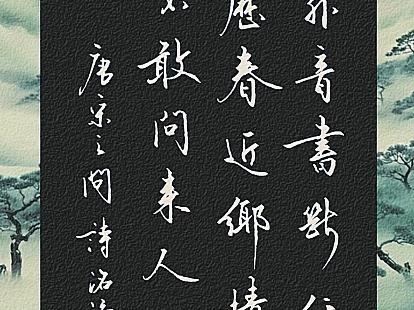 外音書斷
歷春近鄉情
不敢問來人
唐宋之問詩